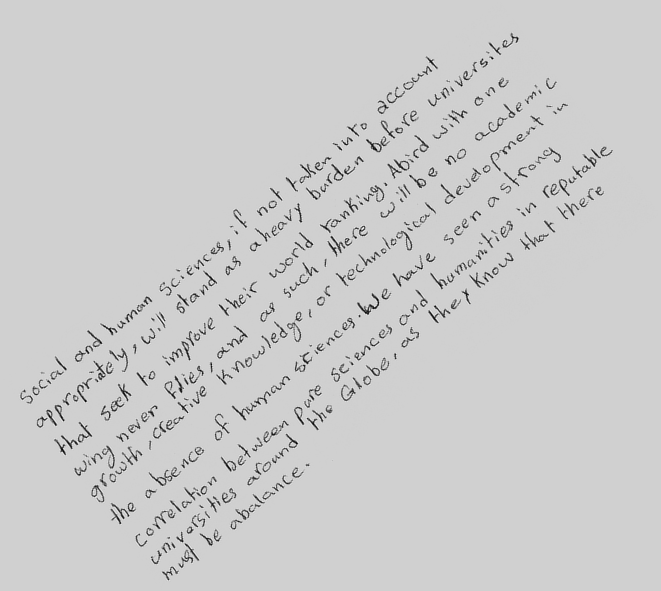 Social and human sciences, if not taken into account
appropriately, will stand as a heavy burden before universites
that seek to improve their world ranking. Abird with one
wing never flies, and as such, there will be no academic
growth, creative knowledge, or technological development in
the absence of human sciences. We have seen a strong
correlation between pure sciences and humanities in reputable
universities around the Globe, as they know that there
must be abalance.